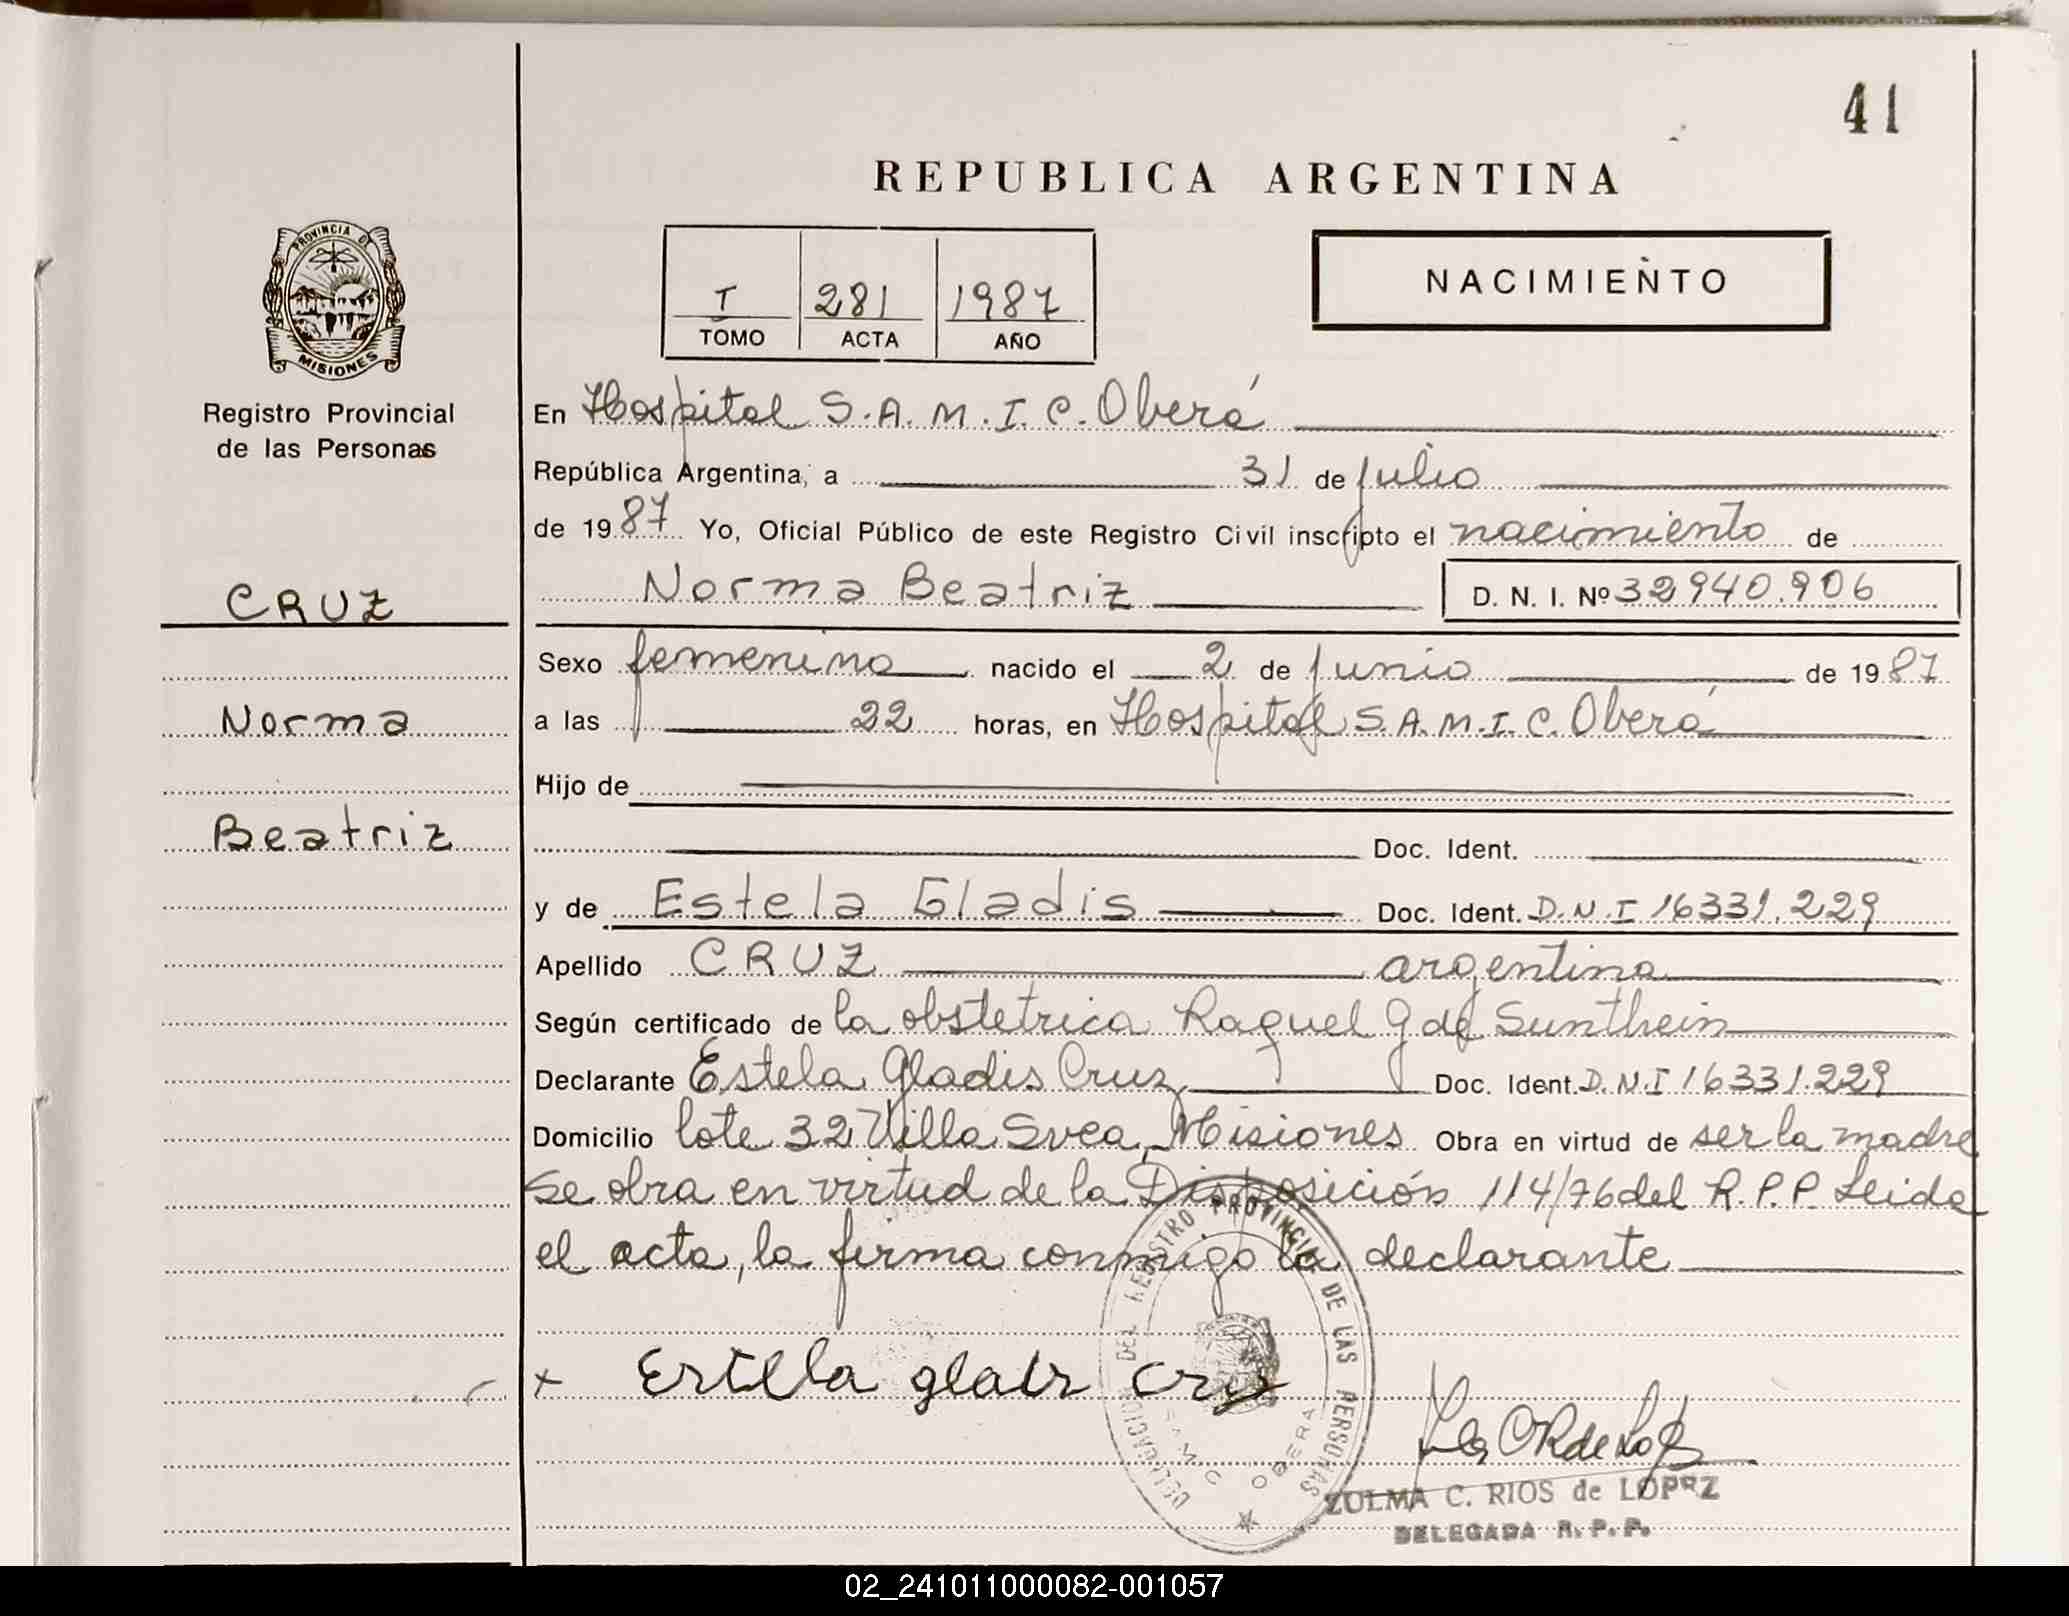 41
REPUBLICA ARGENTINA
PROVINCIA DE
MISIONES
Registro Provincial
de las Personas
T 281 1987
TOMO ACTA AÑO
NACIMIENTO
En Hospital S.A.M.I.C. Oberá
República Argentina, a 31 de julio
de 1987 Yo, Oficial Público de este Registro Civil inscripto el nacimiento de
CRUZ
Norma Beatriz D. N. I. Nº 32940.906
Sexo femenino nacido el 2 de junio de 1987
Norma
a las 22 horas, en Hospital S.A.M.I.C. Oberá
Hijo de
Beatriz
Doc. Ident.
y de Estela Gladis Doc. Ident. D.N.I 16331.229
Apellido CRUZ argentina
Según certificado de la obstetrica Raquel G de Sunthein
Declarante Estela Gladis Cruz Doc. Ident. D.N.I 16331.229
Domicilio lote 32 Villa Svea, Misiones Obra en virtud de ser la madre
se obra en virtud de la Disposición 114/76 del R.P.P. Leida
el acta, la firma conmigo la declarante
DELEGACION DEL REGISTRO PROVINCIAL DE LAS PERSONAS
SAMC OBERA
x Estela glads Cruz
ZULMA C. RIOS de LOPEZ
DELEGADA R.P.P.
02_241011000082-001057